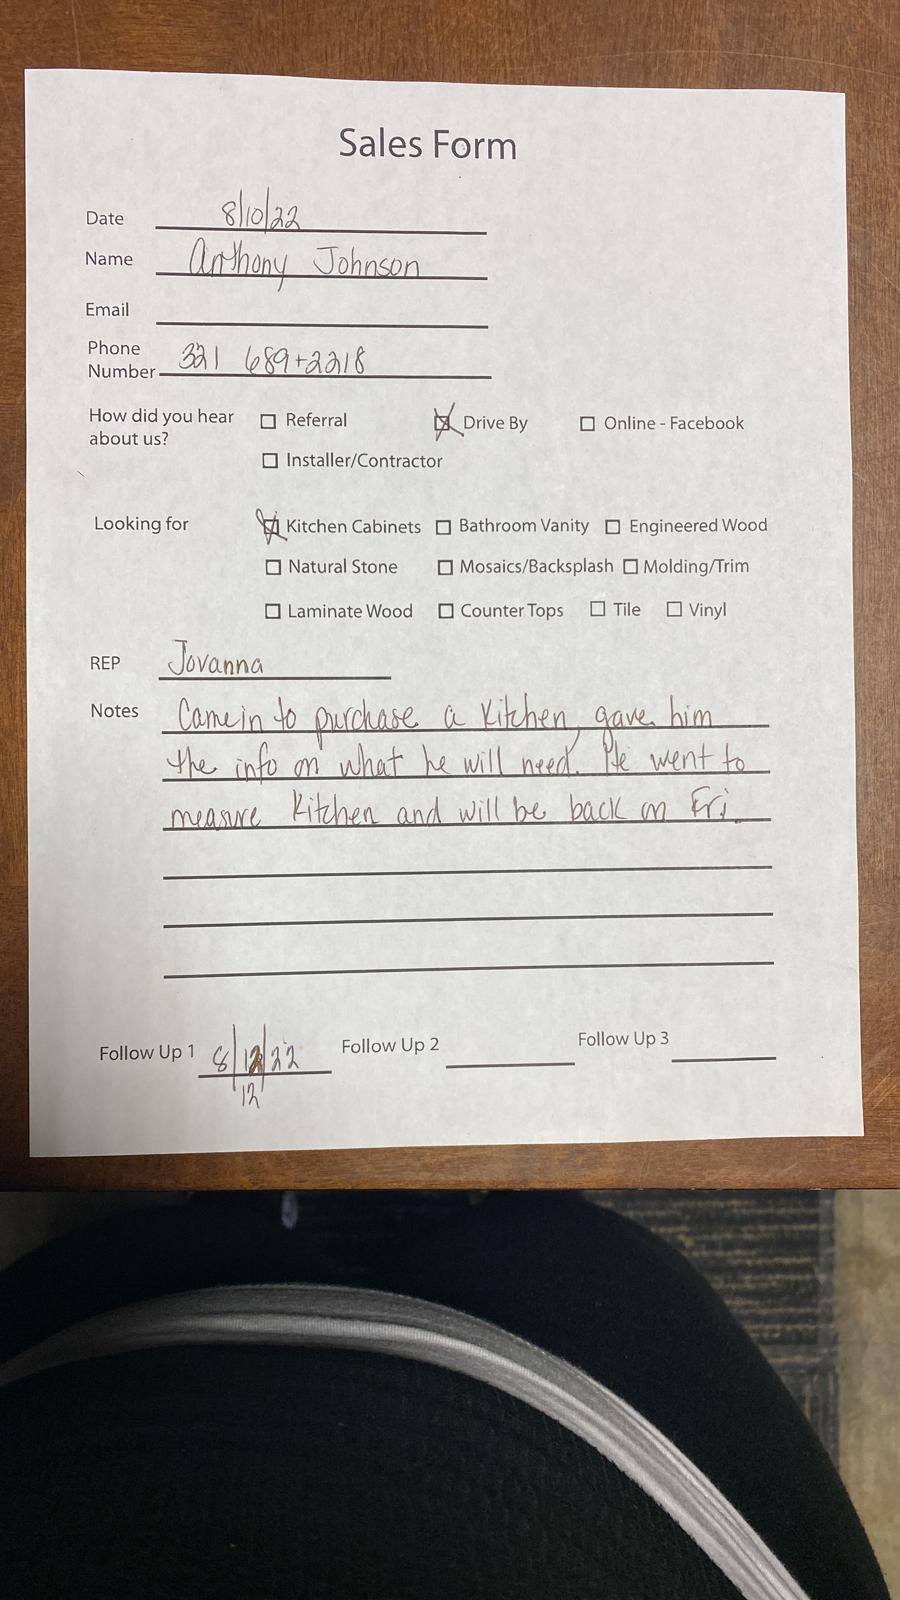 Sales Form
Date 8/10/22
Name Anthony Johnson
Email
Phone
Number 321 689+2218
How did you hear
about us?
☐ Referral ☒ Drive By ☐ Online - Facebook
☐ Installer/Contractor
Looking for ☒ Kitchen Cabinets ☐ Bathroom Vanity ☐ Engineered Wood
☐ Natural Stone ☐ Mosaics/Backsplash ☐ Molding/Trim
☐ Laminate Wood ☐ Counter Tops ☐ Tile ☐ Vinyl
REP Jovanna
Notes Came in to purchase a kitchen, gave him
the info on what he will need. He went to
measure kitchen and will be back on Fri.
Follow Up 1 8/12/22 Follow Up 2 Follow Up 3
12